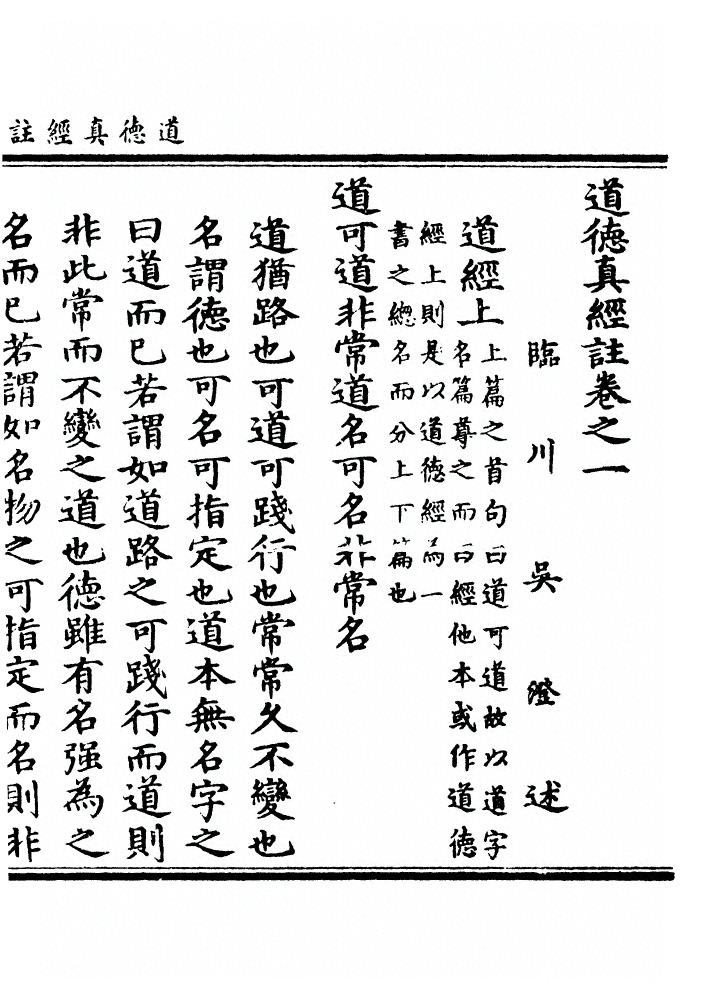 道德真經註
道德真經註卷之一
臨川吳澄述
道經上
上篇之首句曰道可道故以道字
名篇尊之而曰經他本或作道德
經上則是以道德經為一
書之總名而分上下篇也
道可道非常道名可名非常名
道猶路也可道可踐行也常常久不變也
名謂德也可名可指定也道本無名字之
曰道而已若謂如道路之可踐行而道則
非此常而不變之道也德雖有名强為之
名而已若謂如名物之可指定而名則非